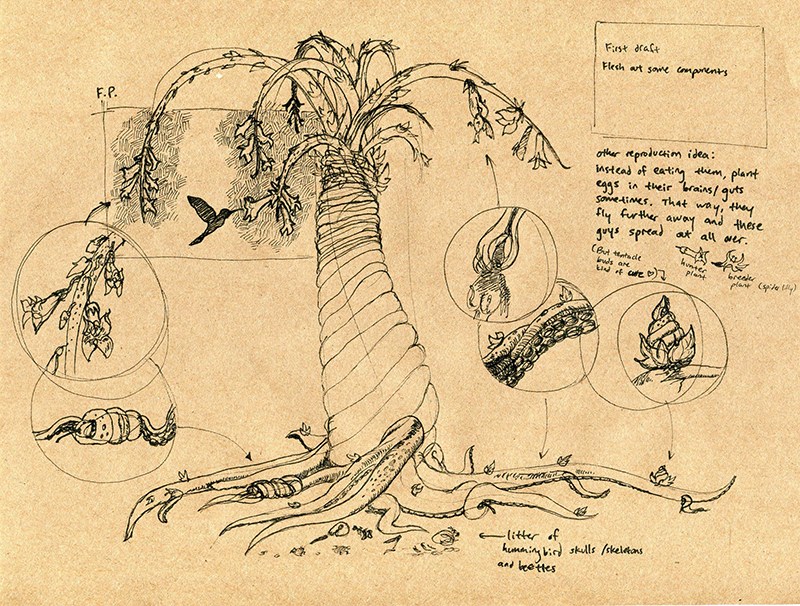 F.P.
First draft
Flesh out some components
other reproduction idea:
instead of eating them, plant
eggs in their brains/guts
sometimes. That way, they
fly further away and these
guys spread at all over.
(But tentacle
buds are
kind of cute ♡)
hunter
plant
breeder
plant (spider lilly)
← litter of
hummingbird skulls/skeletons
and beetles